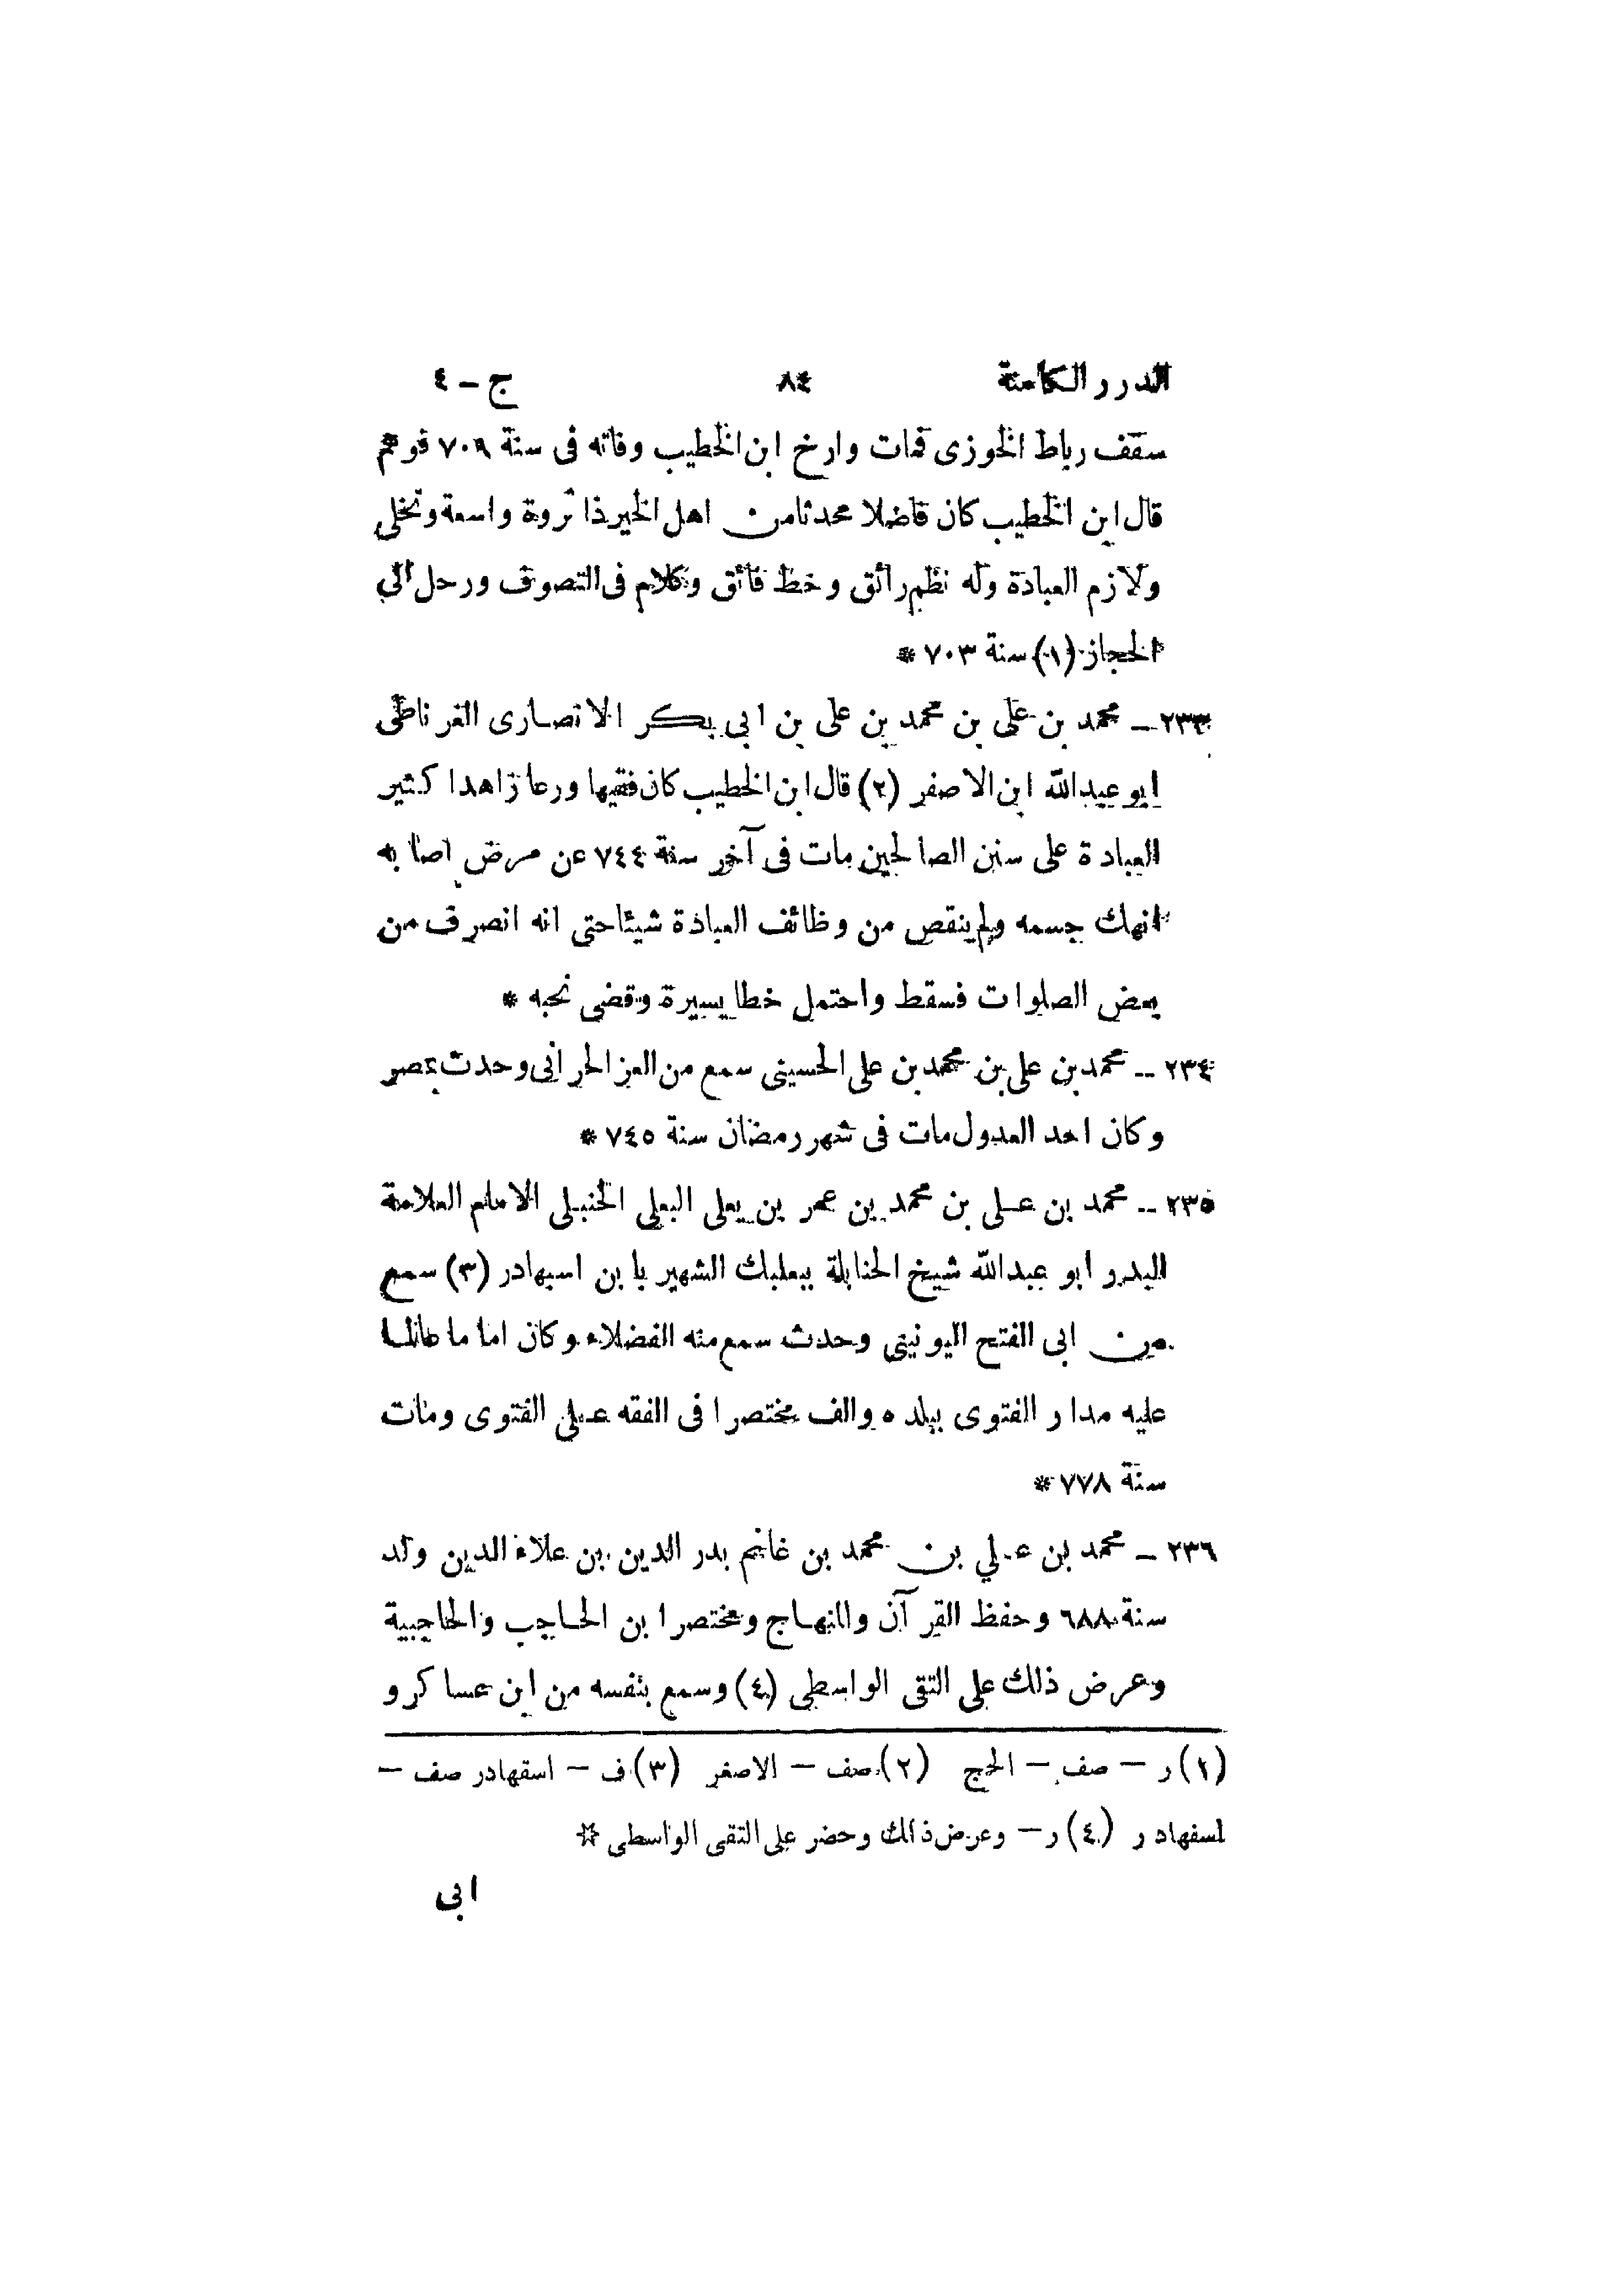 الدرر الكامنة ٨٤ ج - ٤
سقف رباط الخوزى فمات وارخ ابن الخطيب وفاته فى سنة ٧٠٩ فوهم
قال ابن الخطيب كان فاضلا محدثا من اهل الخير ذا ثروة واسعة وتخلى
ولازم العبادة وله نظم رائق وخط فائق وكلام فى التصوف ورحل الى
الحجاز (١) سنة ٧٠٣ *
٢٣٣ - محمد بن على بن محمد بن على بن ابى بكر الانصارى الغرناطى
ابو عبدالله ابن الاصفر (٢) قال ابن الخطيب كان فقيها ورعا زاهدا كثير
العبادة على سنن الصالحين مات فى آخر سنة ٧٤٤ عن مرض اصابه
انهك جسمه ولم ينقص من وظائف العبادة شيئا حتى انه انصرف من
بعض الصلوات فسقط واحتمل خطا يسيرة وقضى نحبه *
٢٣٤ - محمد بن على بن محمد بن على الحسينى سمع من العز الحرانى وحدث بمصر
وكان احد العدول مات فى شهر رمضان سنة ٧٤٥ *
٢٣٥ - محمد بن على بن محمد بن عمر بن يعلى البعلى الحنبلى الامام العلامة
البدر ابو عبدالله شيخ الحنابلة ببعلبك الشهير بابن اسبهادر (٣) سمع
من ابى الفتح اليونينى وحدث سمع منه الفضلاء وكان اماما عالما
عليه مدار الفتوى ببلده والف مختصرا فى الفقه على الفتوى ومات
سنة ٧٧٨ *
٢٣٦ - محمد بن على بن محمد بن غانم بدر الدين بن علاء الدين ولد
سنة ٦٨٨ وحفظ القرآن والمنهاج ومختصر ابن الحاجب والحاجبية
وعرض ذلك على التقى الواسطى (٤) وسمع بنفسه من ابن عساكر و
(١) ر - صف - الحج (٢) صف - الاصغر (٣) ف - اسقهادر صف -
اسفهادر (٤) ر - وعرض ذلك وحضر على التقى الواسطى *
ابى